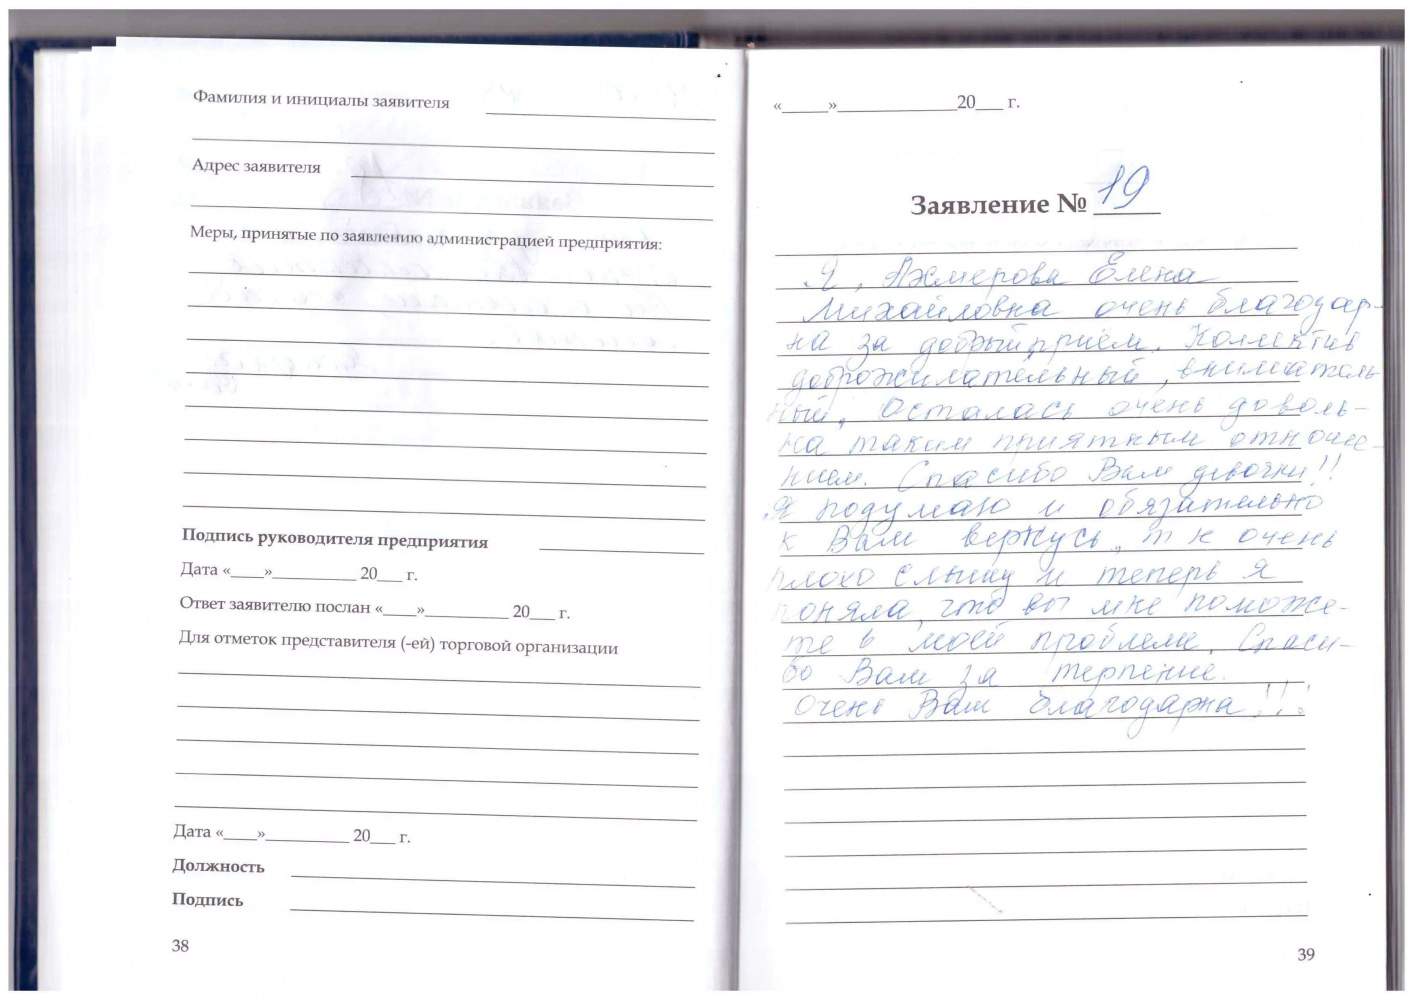 Фамилия и инициалы заявителя
Адрес заявителя
Меры, принятые по заявлению администрацией предприятия:
Подпись руководителя предприятия
Дата «____»__________ 20___ г.
Ответ заявителю послан «____»__________ 20___ г.
Для отметок представителя (-ей) торговой организации
Дата «____»__________ 20___ г.
Должность
Подпись
38
«_____»_____________20___ г.
Заявление № 19
Я, Ахмерова Елена
Михайловна очень благодар-
на за добрый приём. Коллектив
доброжилательный, вниматель
ный, Осталась очень доволь-
на таким приятным отноше-
нием. Спасибо Вам девочки!!
Я подумаю и обязательно
к Вам вернусь, т к очень
плохо слышу и теперь я
поняла, что вы мне поможе-
те в моей проблеме. Спаси-
бо Вам за терпение.
Очень Вам благодарна!!!
39